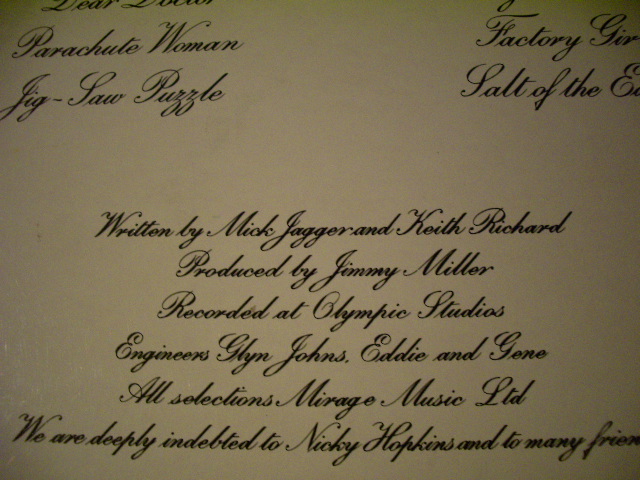 Dear Doctor
Parachute Woman
Factory Gir
Jig-Saw Puzzle
Salt of the Ea
Written by Mick Jagger and Keith Richard
Produced by Jimmy Miller
Recorded at Olympic Studios
Engineers Glyn Johns, Eddie and Gene
All selections Mirage Music Ltd
We are deeply indebted to Nicky Hopkins and to many frien